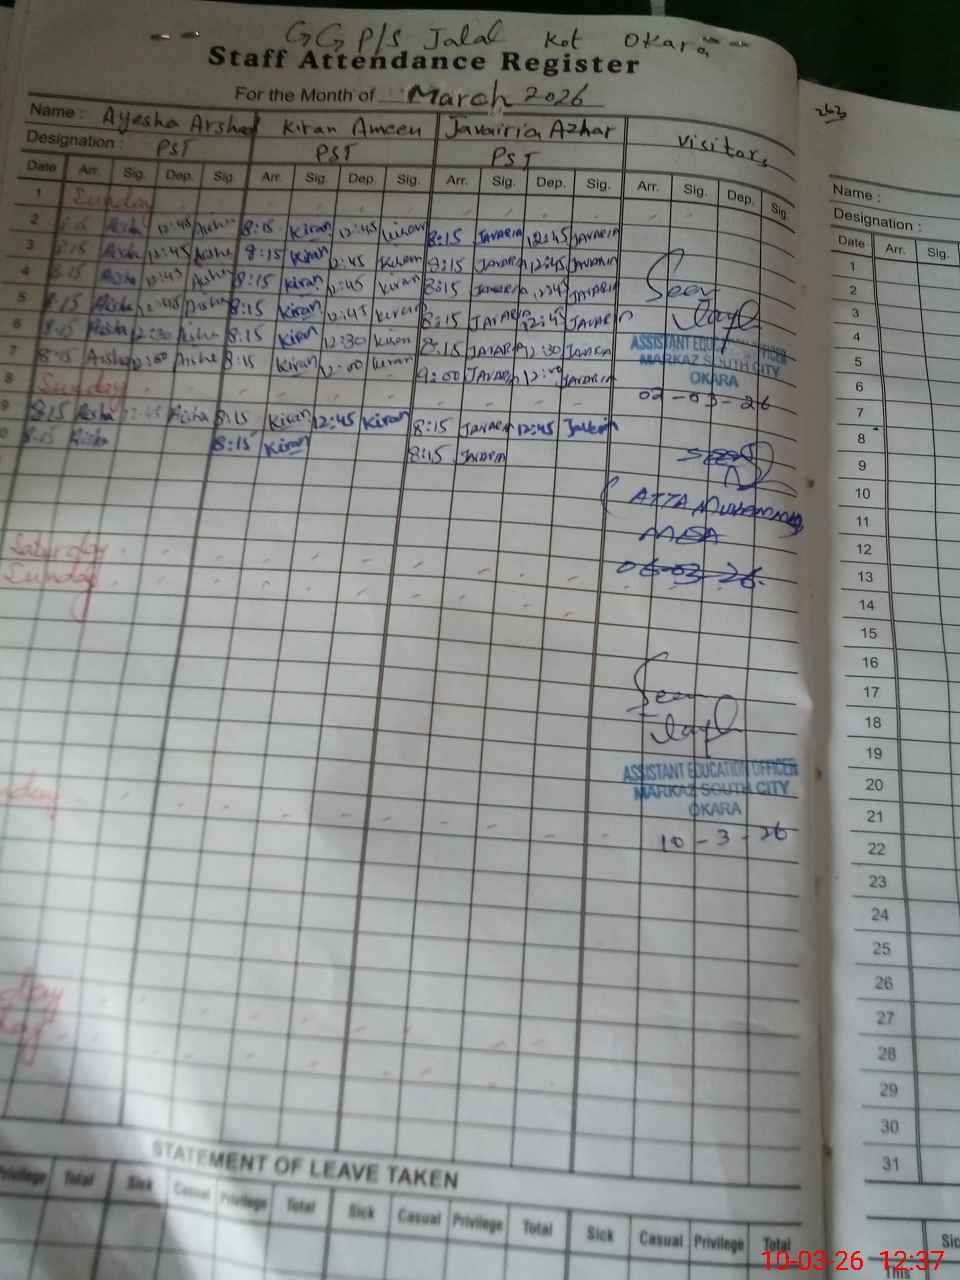 GGP/S Jalal Kot Okara
Staff Attendance Register
For the Month of March 2026
Name : Ayesha Arshad Kiran Ameen Javairria Azhar Visitors
Designation : PST PST PST
Date Arr. Sig. Dep. Sig. Arr. Sig. Dep. Sig. Arr. Sig. Dep. Sig. Arr. Sig. Dep. Sig.
1 Sunday
2 8:15 Aisha 12:45 Aisha 8:15 Kiran 12:45 Kiran 8:15 JAVARIA 12:45 JAVARIA
3 8:15 Aisha 12:45 Aisha 8:15 Kiran 12:45 Kiran 8:15 JAVARIA 12:45 JAVARIA
4 8:15 Aisha 12:45 Aisha 8:15 Kiran 12:45 Kiran 8:15 JAVARIA 12:45 JAVARIA
5 8:15 Aisha 12:45 Aisha 8:15 Kiran 12:45 Kiran 8:15 JAVARIA 12:45 JAVARIA
6 8:15 Aisha 12:30 Aisha 8:15 Kiran 12:30 Kiran 8:15 JAVARIA 12:30 JAVARIA
7 8:15 Aisha 12:00 Aisha 8:15 Kiran 12:00 Kiran 9:00 JAVARIA 12:00 JAVARIA
8 Sunday
9 8:15 Aisha 12:45 Aisha 8:15 Kiran 12:45 Kiran 8:15 JAVARIA 12:45 JAVARIA
8:15 Aisha 8:15 Kiran 8:15 JAVARIA
Saturday
Sunday
Seen
ASSISTANT EDUCATION OFFICER
MARKAZ SOUTH CITY
OKARA
02-03-26
Seen
ATTA MUHAMMAD
MEA
06-03-26.
Seen
ASSISTANT EDUCATION OFFICER
MARKAZ SOUTH CITY
OKARA
10-3-26
STATEMENT OF LEAVE TAKEN
Privilege Total Sick Casual Privilege Total Sick Casual Privilege Total Sick Casual Privilege Total
Name :
Designation :
Date Arr. Sig.
1
2
3
4
5
6
7
8
9
10
11
12
13
14
15
16
17
18
19
20
21
22
23
24
25
26
27
28
29
30
31
This
10-03-26 12:37